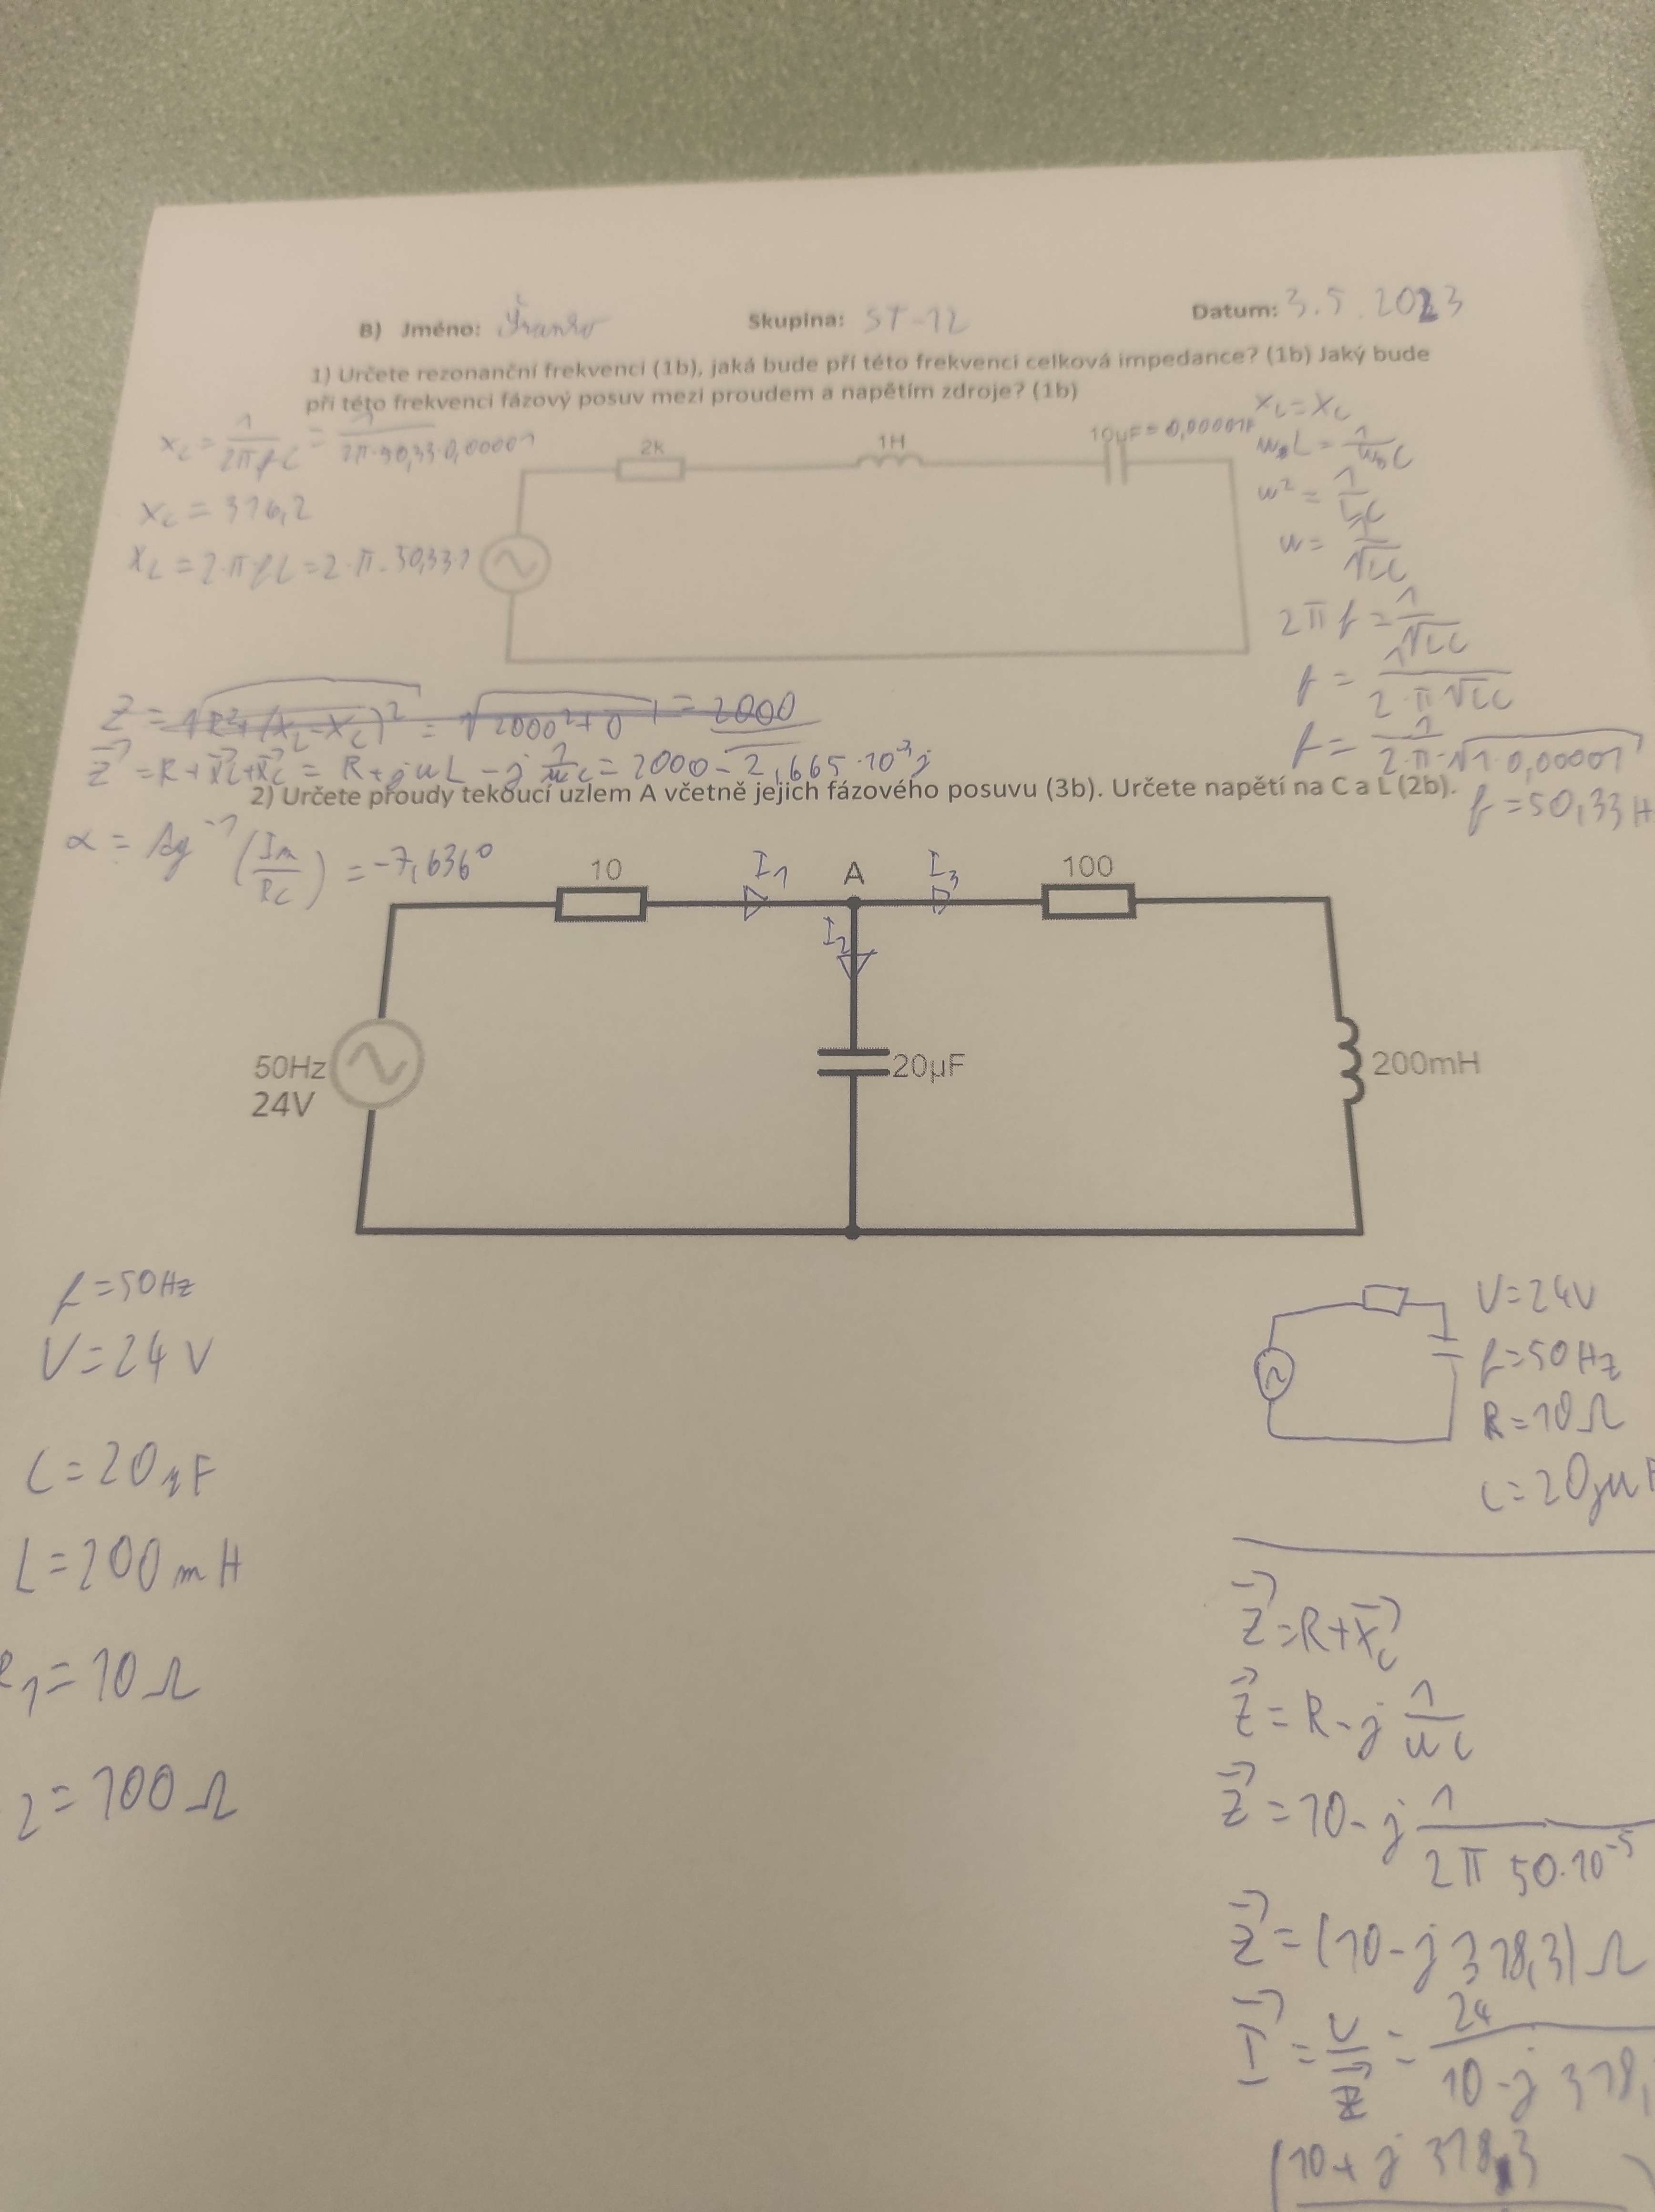 B) Jméno: Skupina: ST-12 Datum: 3.5.2023
1) Určete rezonanční frekvenci (1b), jaká bude pří této frekvenci celková impedance? (1b) Jaký bude
při této frekvenci fázový posuv mezi proudem a napětím zdroje? (1b)
X_C = 1/(2πfC) = 1/(2π·50,33·0,00001
X_C = 316,2
X_L = 2·π·f·L = 2·π·50,33·1
2k
1H
10µF = 0,00001F
X_L = X_C
ω_0L = 1/(ω_0C)
ω² = 1/(LC)
ω = 1/√LC
2πf = 1/√LC
f = 1/(2·π√LC)
f = 1/(2·π·√1·0,00001)
f = 50,33 H
Z = √R²+(X_L-X_C)² = √2000²+0 = 2000
Z = R+X_L+X_C = R+jωL - j 1/ωC = 2000 - 2,665·10⁻³j
2) Určete proudy tekoucí uzlem A včetně jejich fázového posuvu (3b). Určete napětí na C a L (2b).
α = tg⁻¹ (Im/Re) = -7,636°
10
I_1
A
I_3
100
I_2
50Hz
24V
20µF
200mH
f = 50Hz
U = 24 V
C = 20µF
L = 200mH
R_1 = 10Ω
2 = 100Ω
U = 24V
f = 50Hz
R = 10Ω
C = 20µF
Z = R+X_C
Z = R - j 1/ωC
Z = 10 - j 1/(2π 50·10⁻⁵
Z = (10 - j 318,3) Ω
I = U/Z = 24/(10 - j 318,
(10 + j 318,3